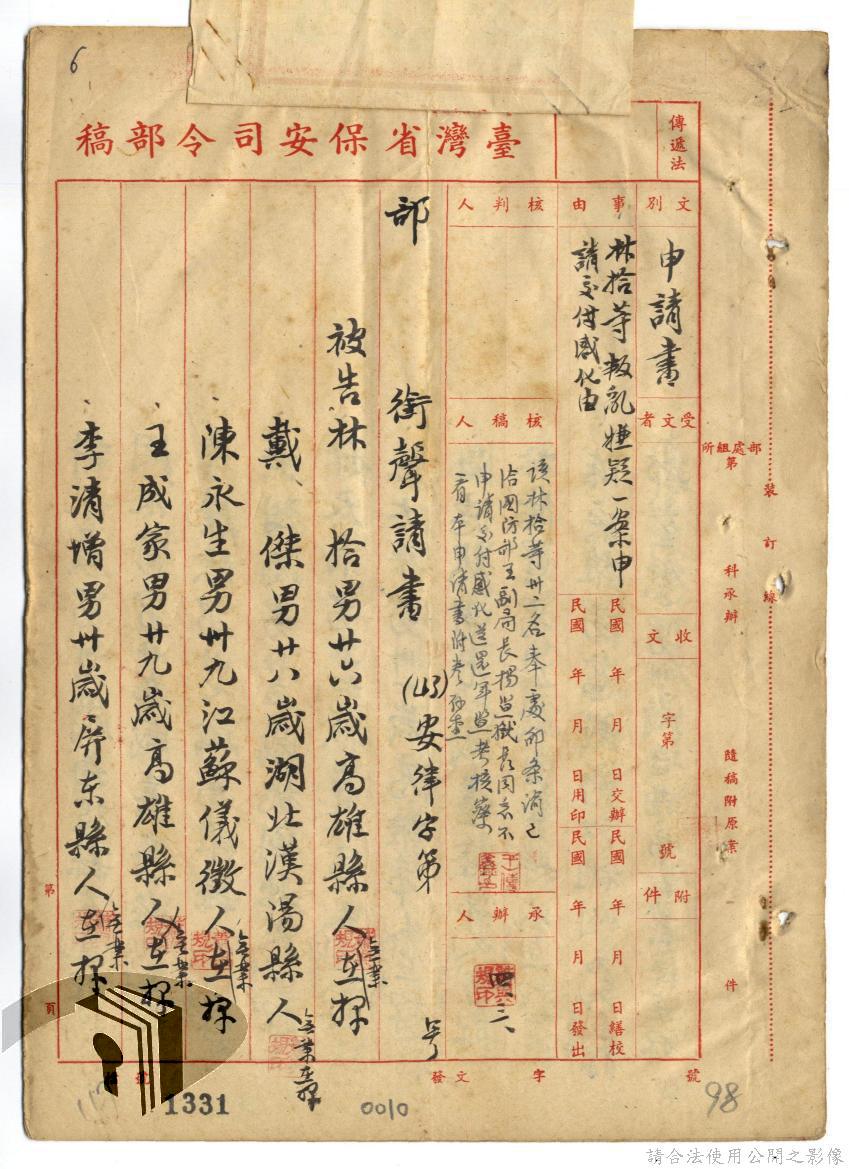 6
臺灣省保安司令部稿
傳遞法
文別
申請書
受文者
收文
字第
號
附件
事由
林拾等叛亂嫌疑一案申
請交付感化由
民國 年 月 日交辦
民國 年 月 日繕校
民國 年 月 日用印
民國 年 月 日發出
核判人
核稿人
該林拾等卅二名奉處卯條
洽國防部王副局長楊監獄長同意不
申請交付感化送還軍監考核
承辦人
部 銜聲請書 安律字第 號
被告林 拾男廿六歲高雄縣人無業在押
戴 傑男廿八歲湖北漢陽縣人無業在押
陳永生男卅九江蘇儀徵人無業在押
王成家男廿九歲高雄縣人無業在押
李清增男卅歲屏東縣人無業在押
部處組所
第 科承辦
隨稿附原案 件
裝訂線
第 頁
發文 字 號
1331
0010
98
請合法使用公開之影像